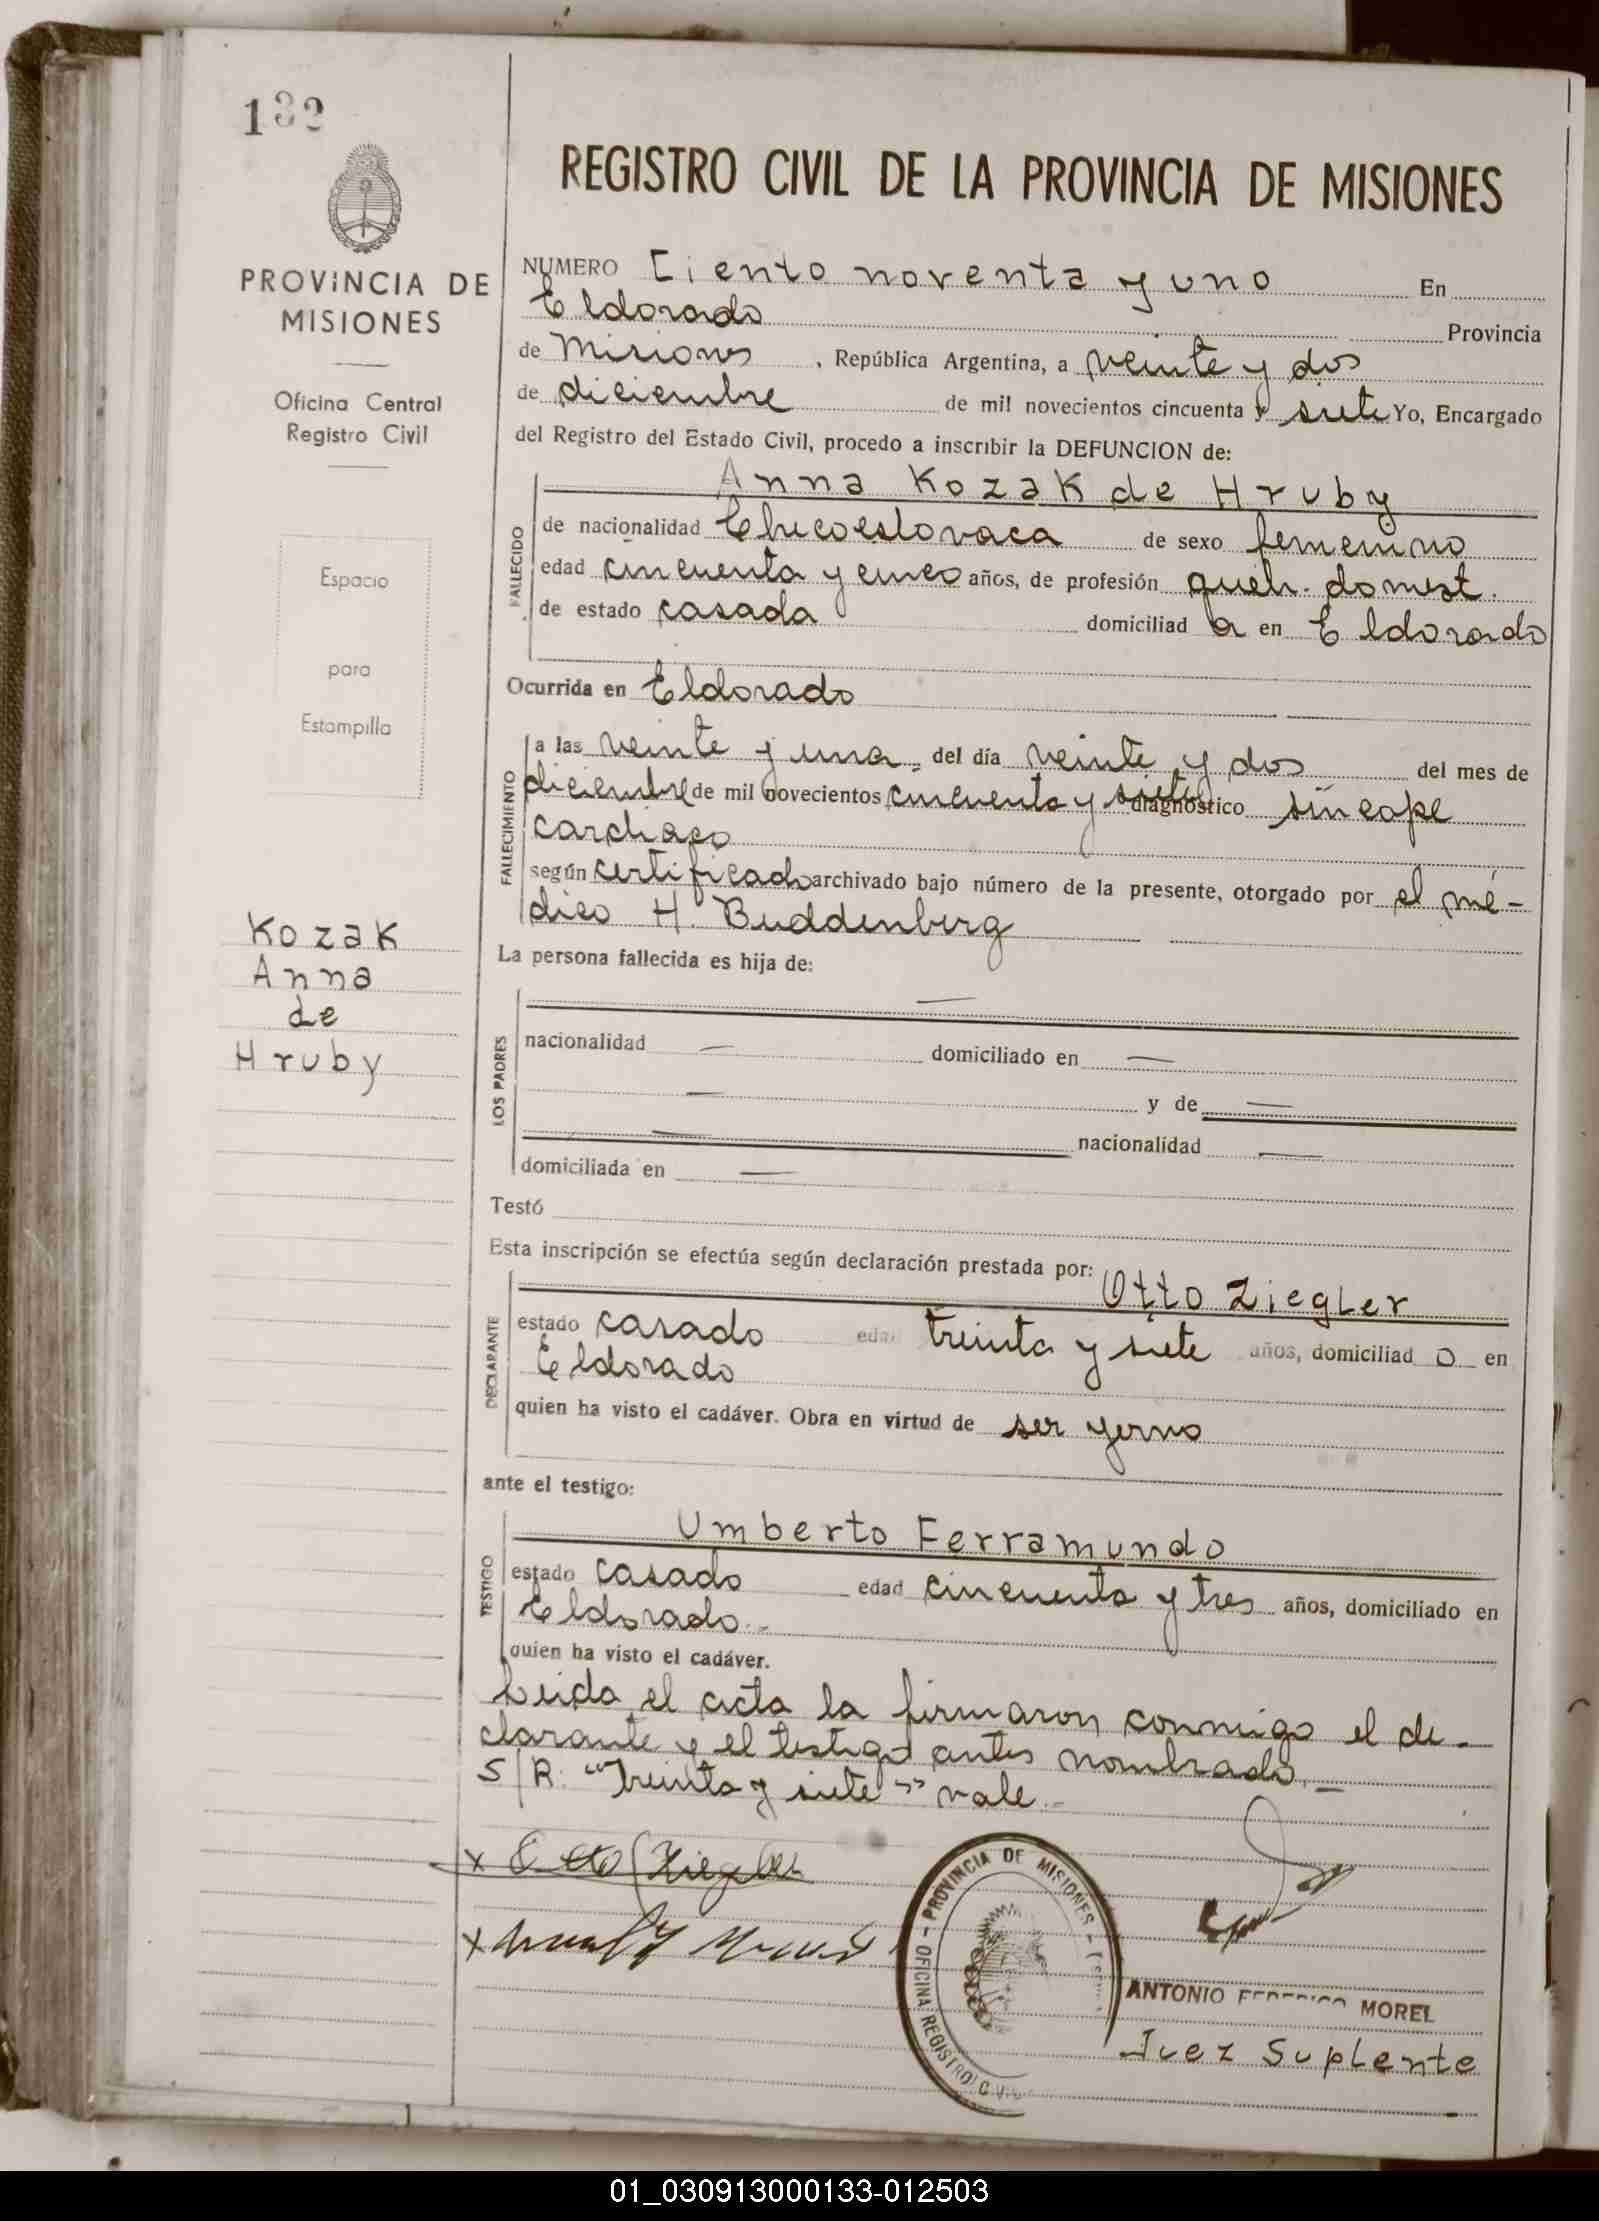 132
PROVINCIA DE
MISIONES
Oficina Central
Registro Civil
Espacio
para
Estampilla
Kozak
Anna
de
Hruby
REGISTRO CIVIL DE LA PROVINCIA DE MISIONES
NUMERO Ciento noventa y uno En
Eldorado Provincia
de Misiones, República Argentina, a veinte y dos
de diciembre de mil novecientos cincuenta y siete Yo, Encargado
del Registro del Estado Civil, procedo a inscribir la DEFUNCION de:
Anna Kozak de Hruby
FALLECIDO
de nacionalidad Checoeslovaca de sexo femenino
edad cincuenta y cinco años, de profesión queh. domest.
de estado casada domiciliad a en Eldorado
Ocurrida en Eldorado
FALLECIMIENTO
a las veinte y una.- del día veinte y dos del mes de
diciembre de mil novecientos cincuenta y siete diagnóstico síncope
cardiaco
según certificado archivado bajo número de la presente, otorgado por el mé-
dico H. Buddenberg
La persona fallecida es hija de:
LOS PADRES
—
nacionalidad — domiciliado en —
— y de —
— nacionalidad —
domiciliada en —
Testó
Esta inscripción se efectúa según declaración prestada por:
Otto Ziegler
DECLARANTE
estado casado edad treinta y siete años, domiciliad o en
Eldorado
quien ha visto el cadáver. Obra en virtud de ser yerno
ante el testigo:
Umberto Ferramundo
TESTIGO
estado casado edad cincuenta y tres años, domiciliado en
Eldorado.-
quien ha visto el cadáver.
Leida el acta la firmaron conmigo el de-
clarante y el testigo antes nombrado.-
S/R: "Treinta y siete-" vale.-
x Otto Ziegler
x
PROVINCIA DE MISIONES
OFICINA REGISTRO CIVIL
ANTONIO FEDERICO MOREL
Juez Suplente
01_030913000133-012503